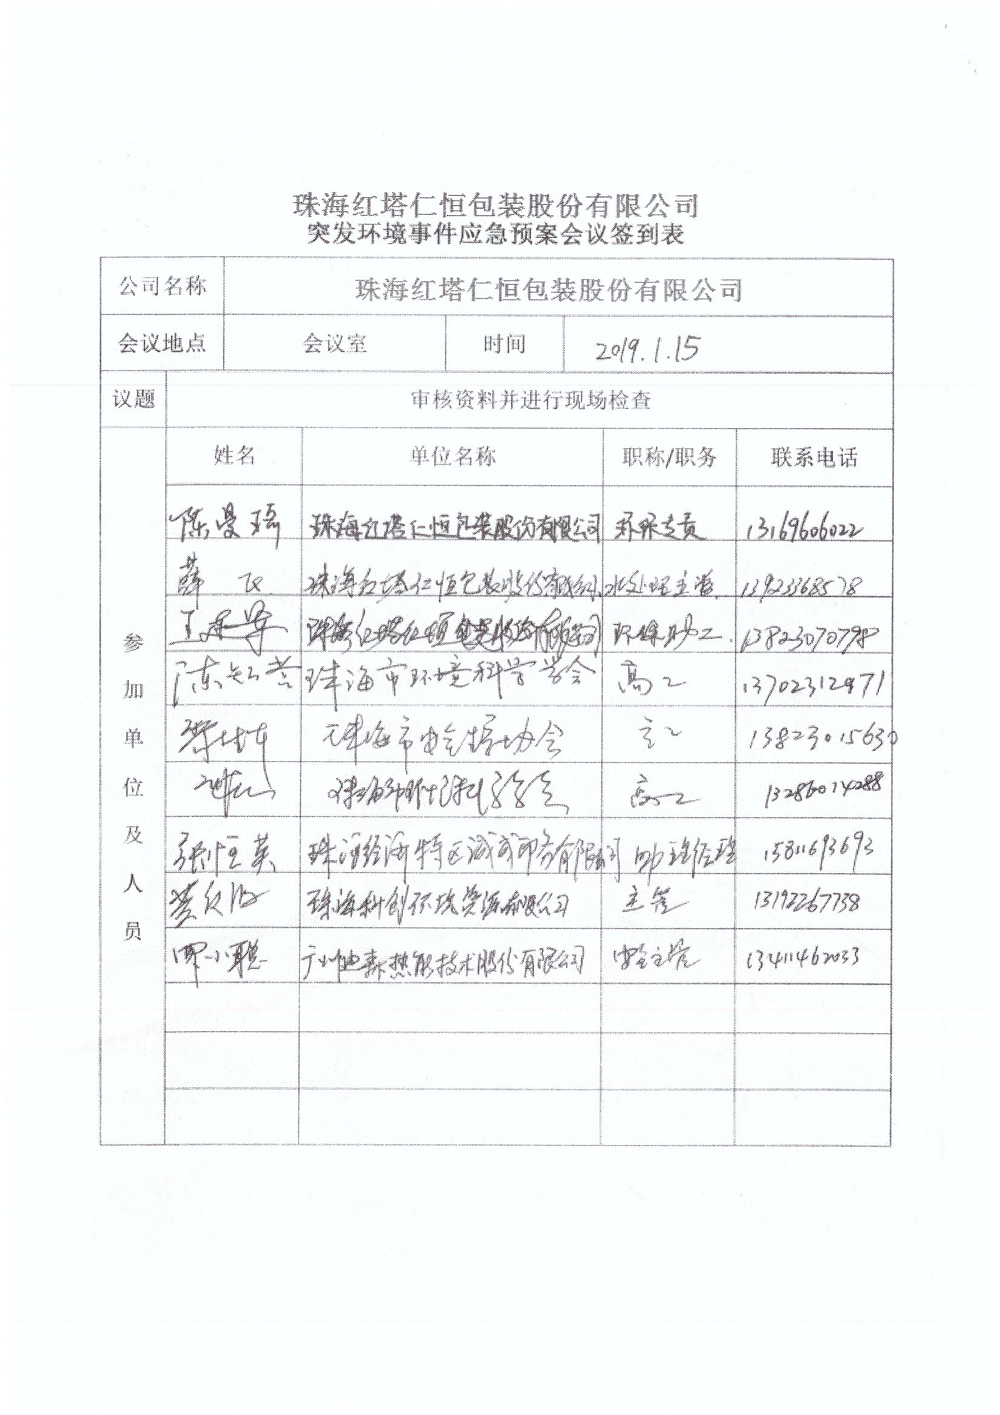 珠海红塔仁恒包装股份有限公司
突发环境事件应急预案会议签到表
公司名称 珠海红塔仁恒包装股份有限公司
会议地点 会议室 时间 2019.1.15
议题 审核资料并进行现场检查
参加单位及人员
姓名 单位名称 职称/职务 联系电话
陈曼琦 珠海红塔仁恒包装股份有限公司 环保专员 13169606022
薛飞 珠海红塔仁恒包装股份有限公司 水处理主管 13923368578
珠海红塔仁恒包装股份有限公司 环保助工 13823070798
珠海市环境科学学会 高工 13702312971
珠海市 协会 13823015630
高工 13286014288
张恒英 珠海经济特区诚成印务有限公司 助理经理 15811693693
珠海科创环境资源有限公司 主管 13192267738
小聪 广州迪森热能技术股份有限公司 安全主管 13411462033